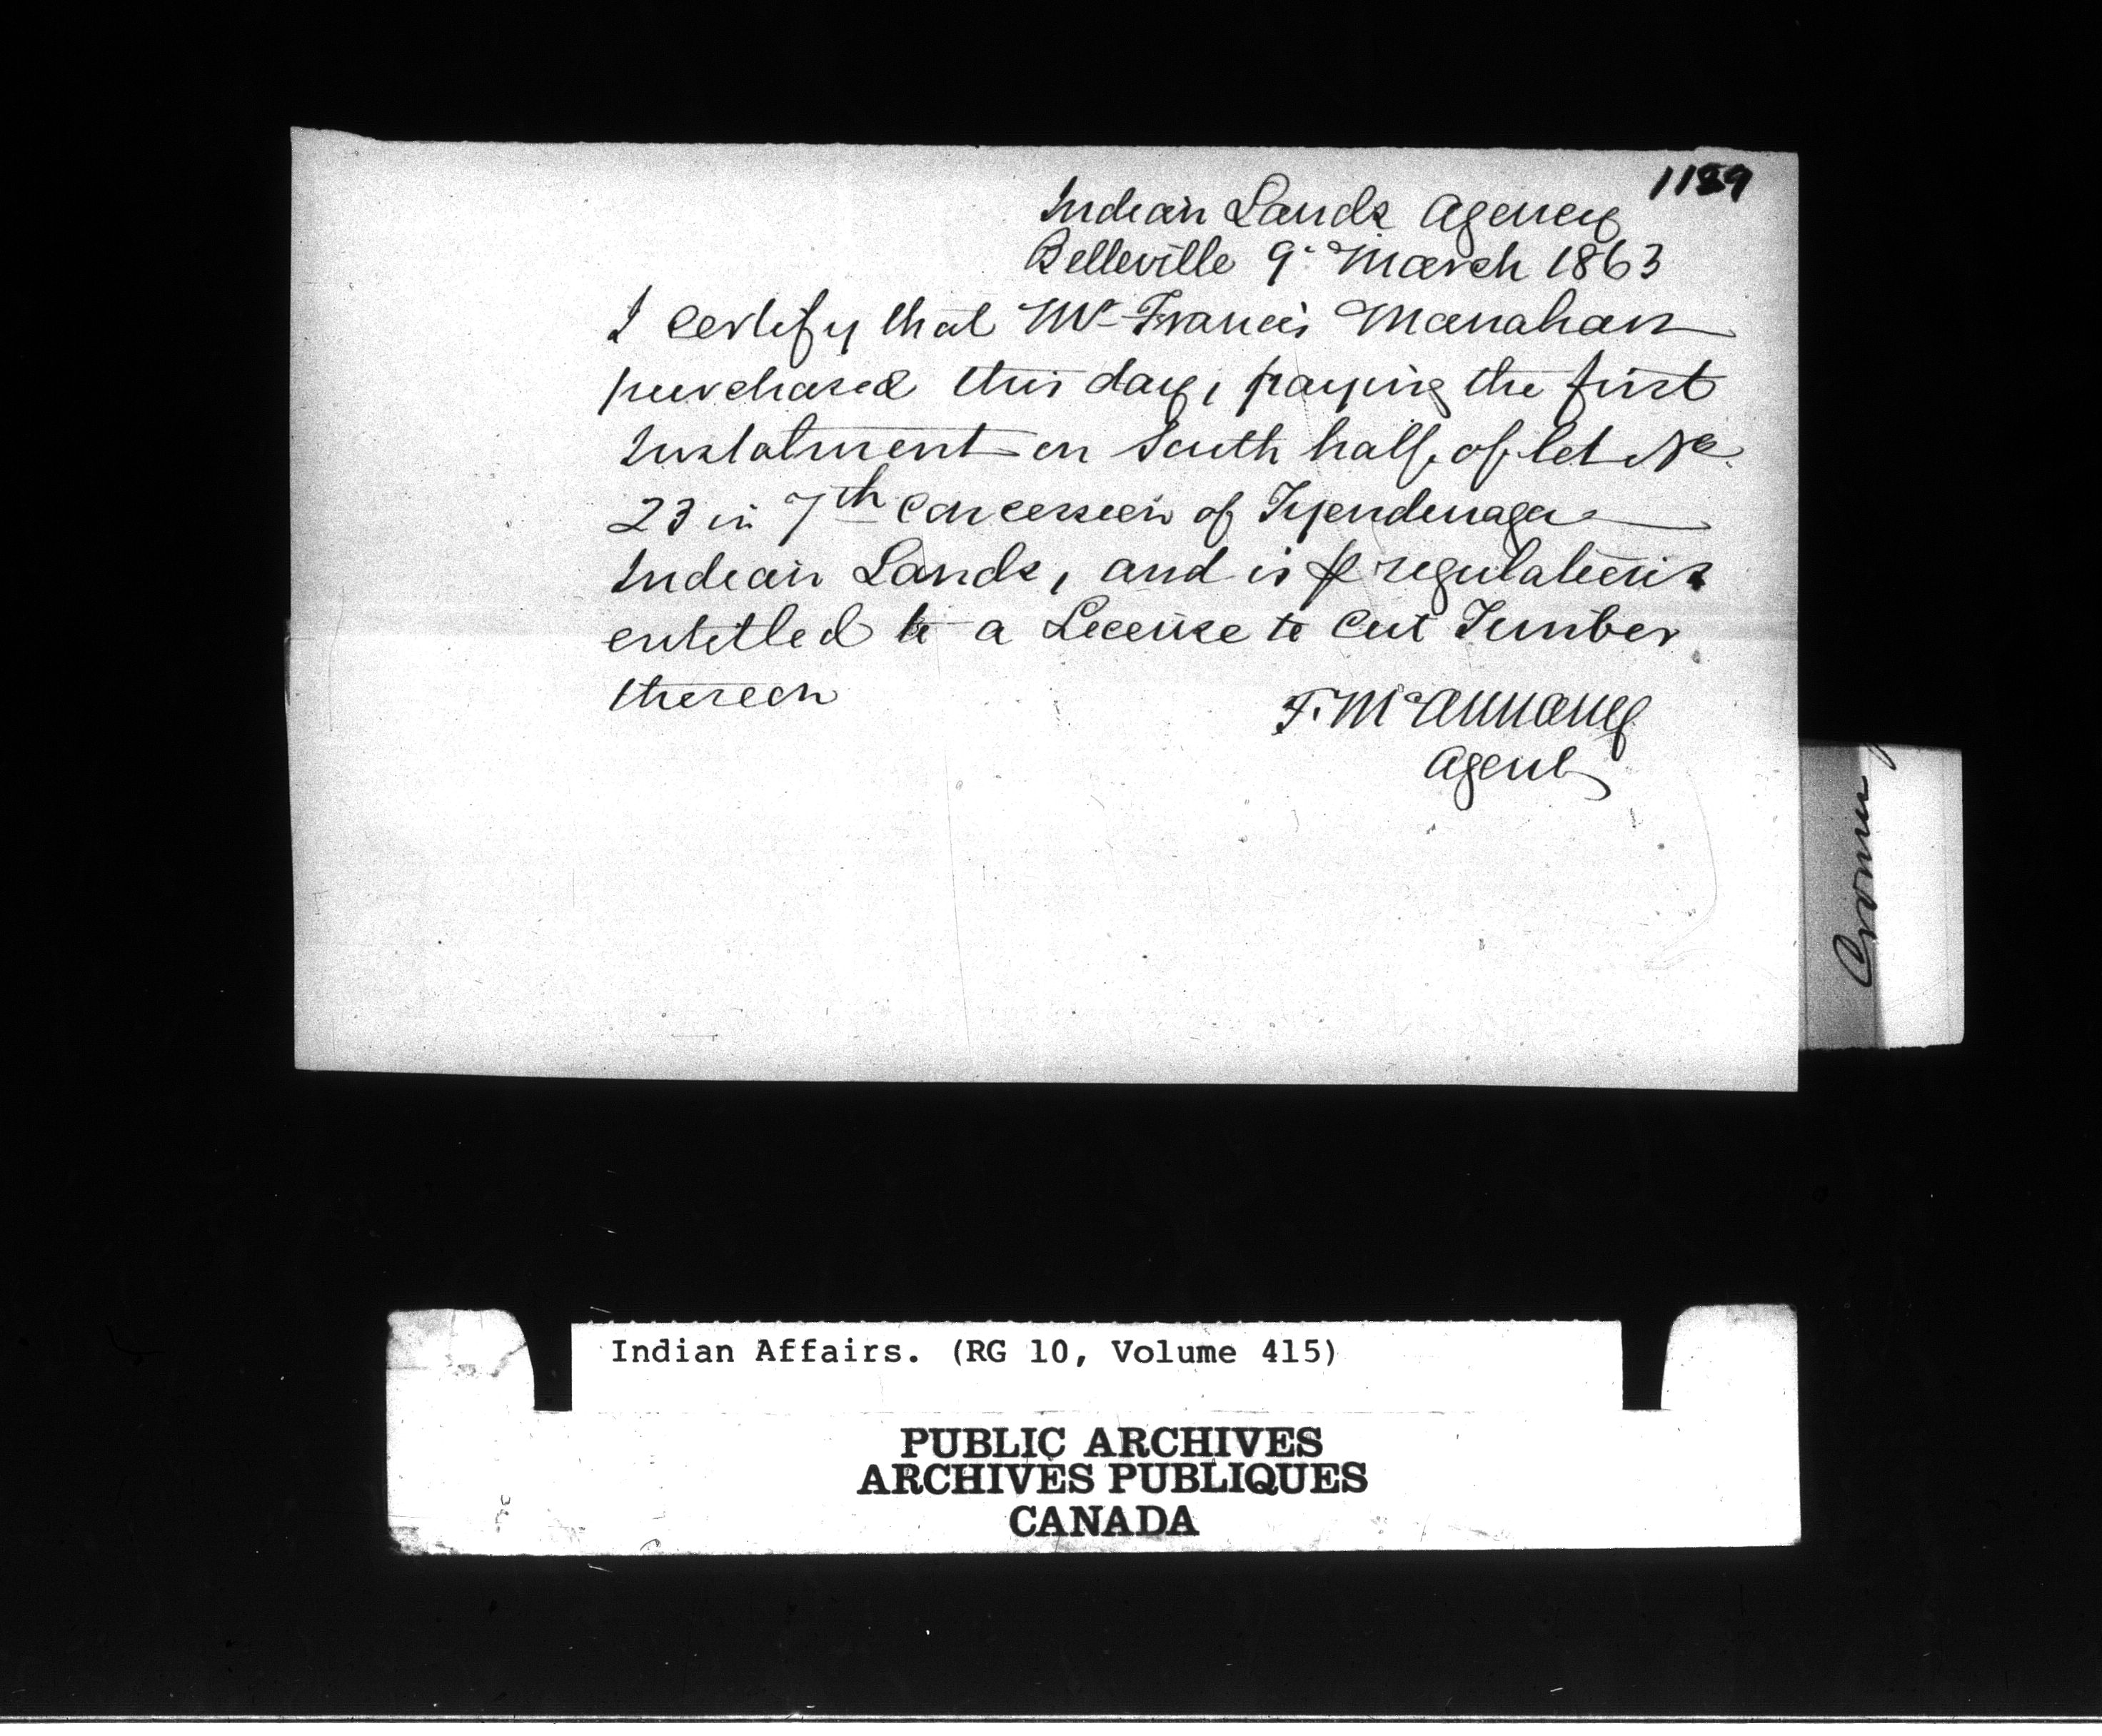 1189
Indian Lands Agency
Belleville 9. March 1863
I certify that Mr Francis Manahan
purchased this day, paying the first
Instalment on South half of lot No.
23 in 7th Concession of Tyendenaga
Indian Lands, and is ⅌ regulations
entitled to a License to Cut Timber
thereon
T. McAnnany
Agent
Crown
Indian Affairs. (RG 10, Volume 415)
PUBLIC ARCHIVES
ARCHIVES PUBLIQUES
CANADA